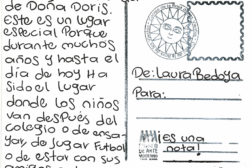 de Doña Doris.
Este es un lugar
especial Porque
durante muchos
años y hasta el
día de hoy Ha
Sido el lugar
donde los niños
van después del
colegio o de ensa-
yar, de Jugar Futbol
o de estar con sus
De: Laura Bedoya
Para:
¡es una
nota!